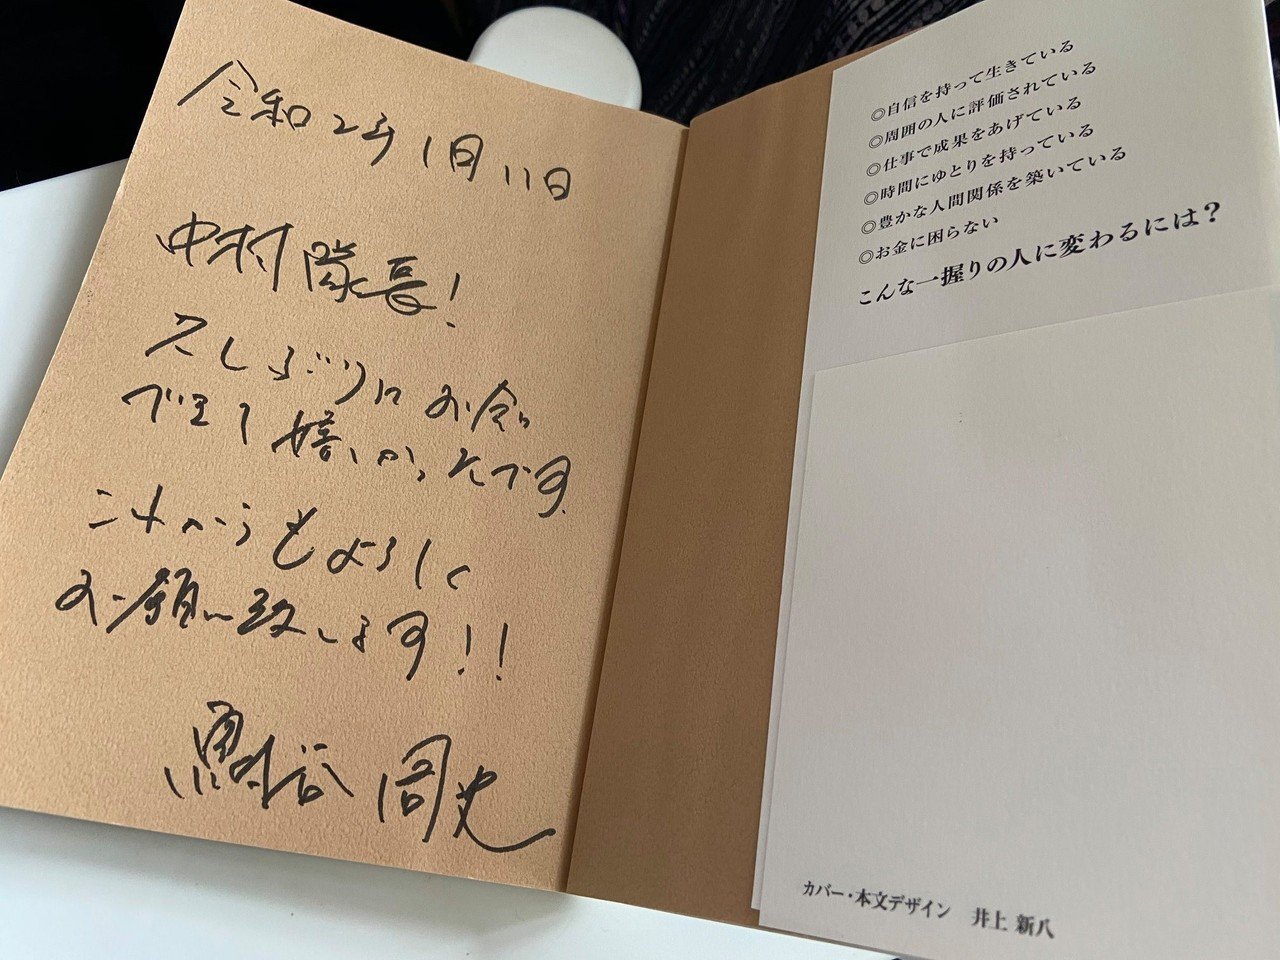 令和2年1月11日
中村隊長!
久しぶりにお会い
できて嬉しかったです。
これからもよろしく
お願い致します!!
◎自信を持って生きている
◎周囲の人に評価されている
◎仕事で成果をあげている
◎時間にゆとりを持っている
◎豊かな人間関係を築いている
◎お金に困らない
こんな一握りの人に変わるには?
カバー・本文デザイン 井上 新八